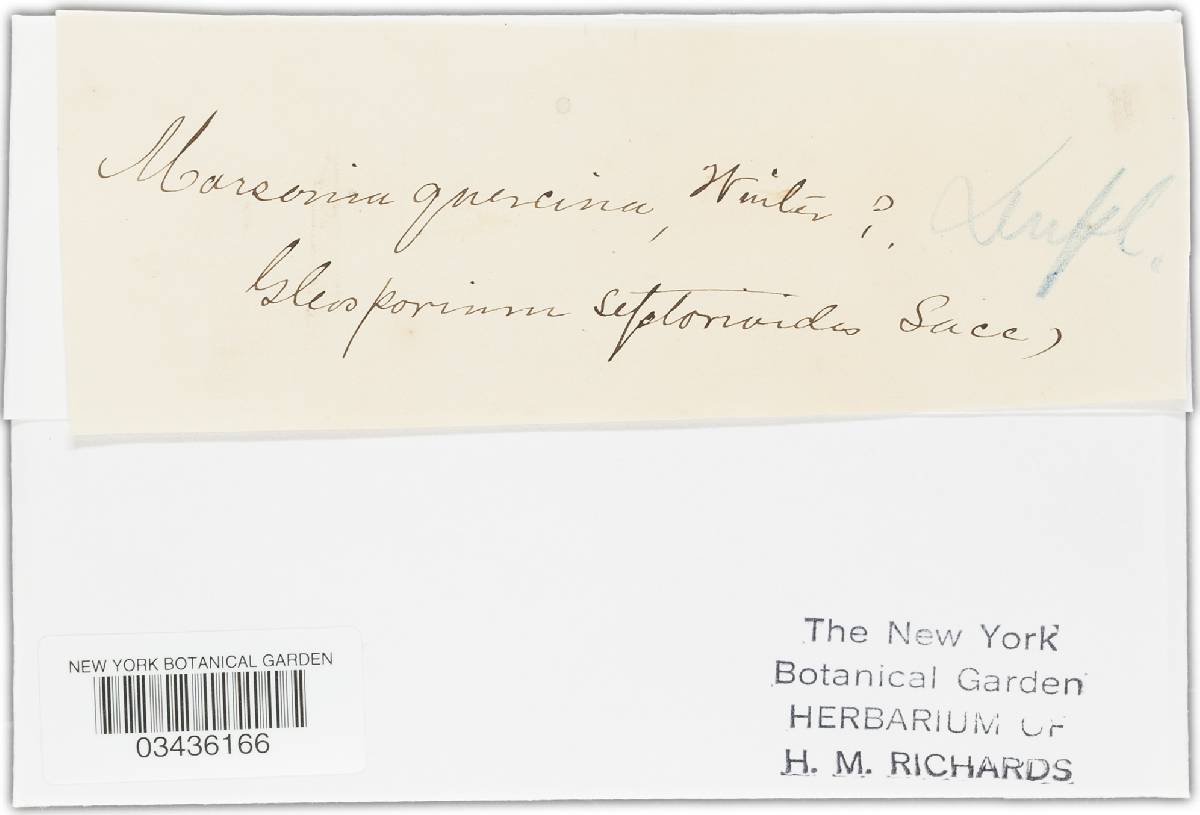 Marsonia quercina, Winter ?. Dupl.
Gleosporium septorioides Sacc)
NEW YORK BOTANICAL GARDEN
03436166
The New York
Botanical Garden
HERBARIUM OF
H. M. RICHARDS